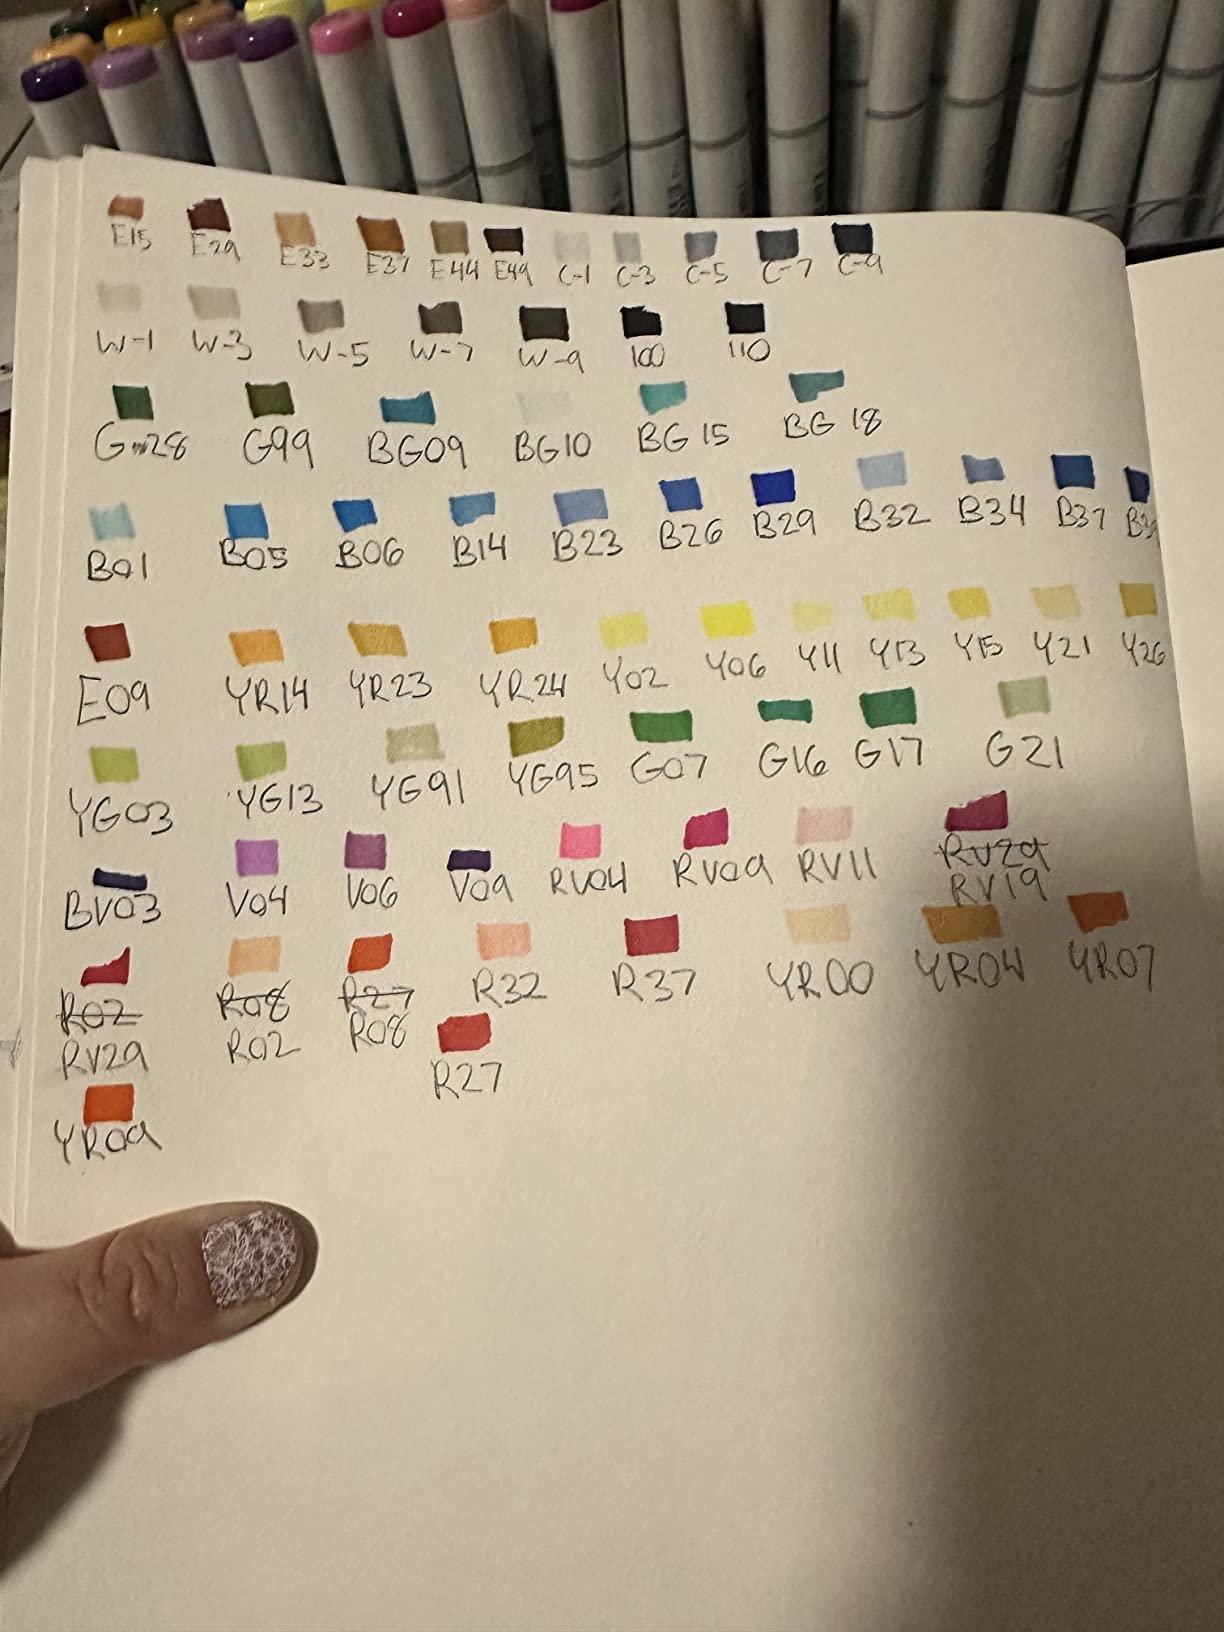 E15 E29 E33 E37 E44 E49 C-1 C-3 C-5 C-7 C-9
W-1 W-3 W-5 W-7 W-9 100 110
G28 G99 BG09 BG10 BG15 BG 18
B01 B05 B06 B14 B23 B26 B29 B32 B34 B37
E09 YR14 YR23 YR24 Y02 Y06 Y11 Y13 Y15 Y21 Y26
YG03 YG13 YG91 YG95 G07 G16 G17 G21
BV03 V04 V06 V09 RV04 RV09 RV11 RV29
RV19
R02 R08 R27 R32 R37 YR00 YR04 YR07
RV29 R02 R08
R27
YR09